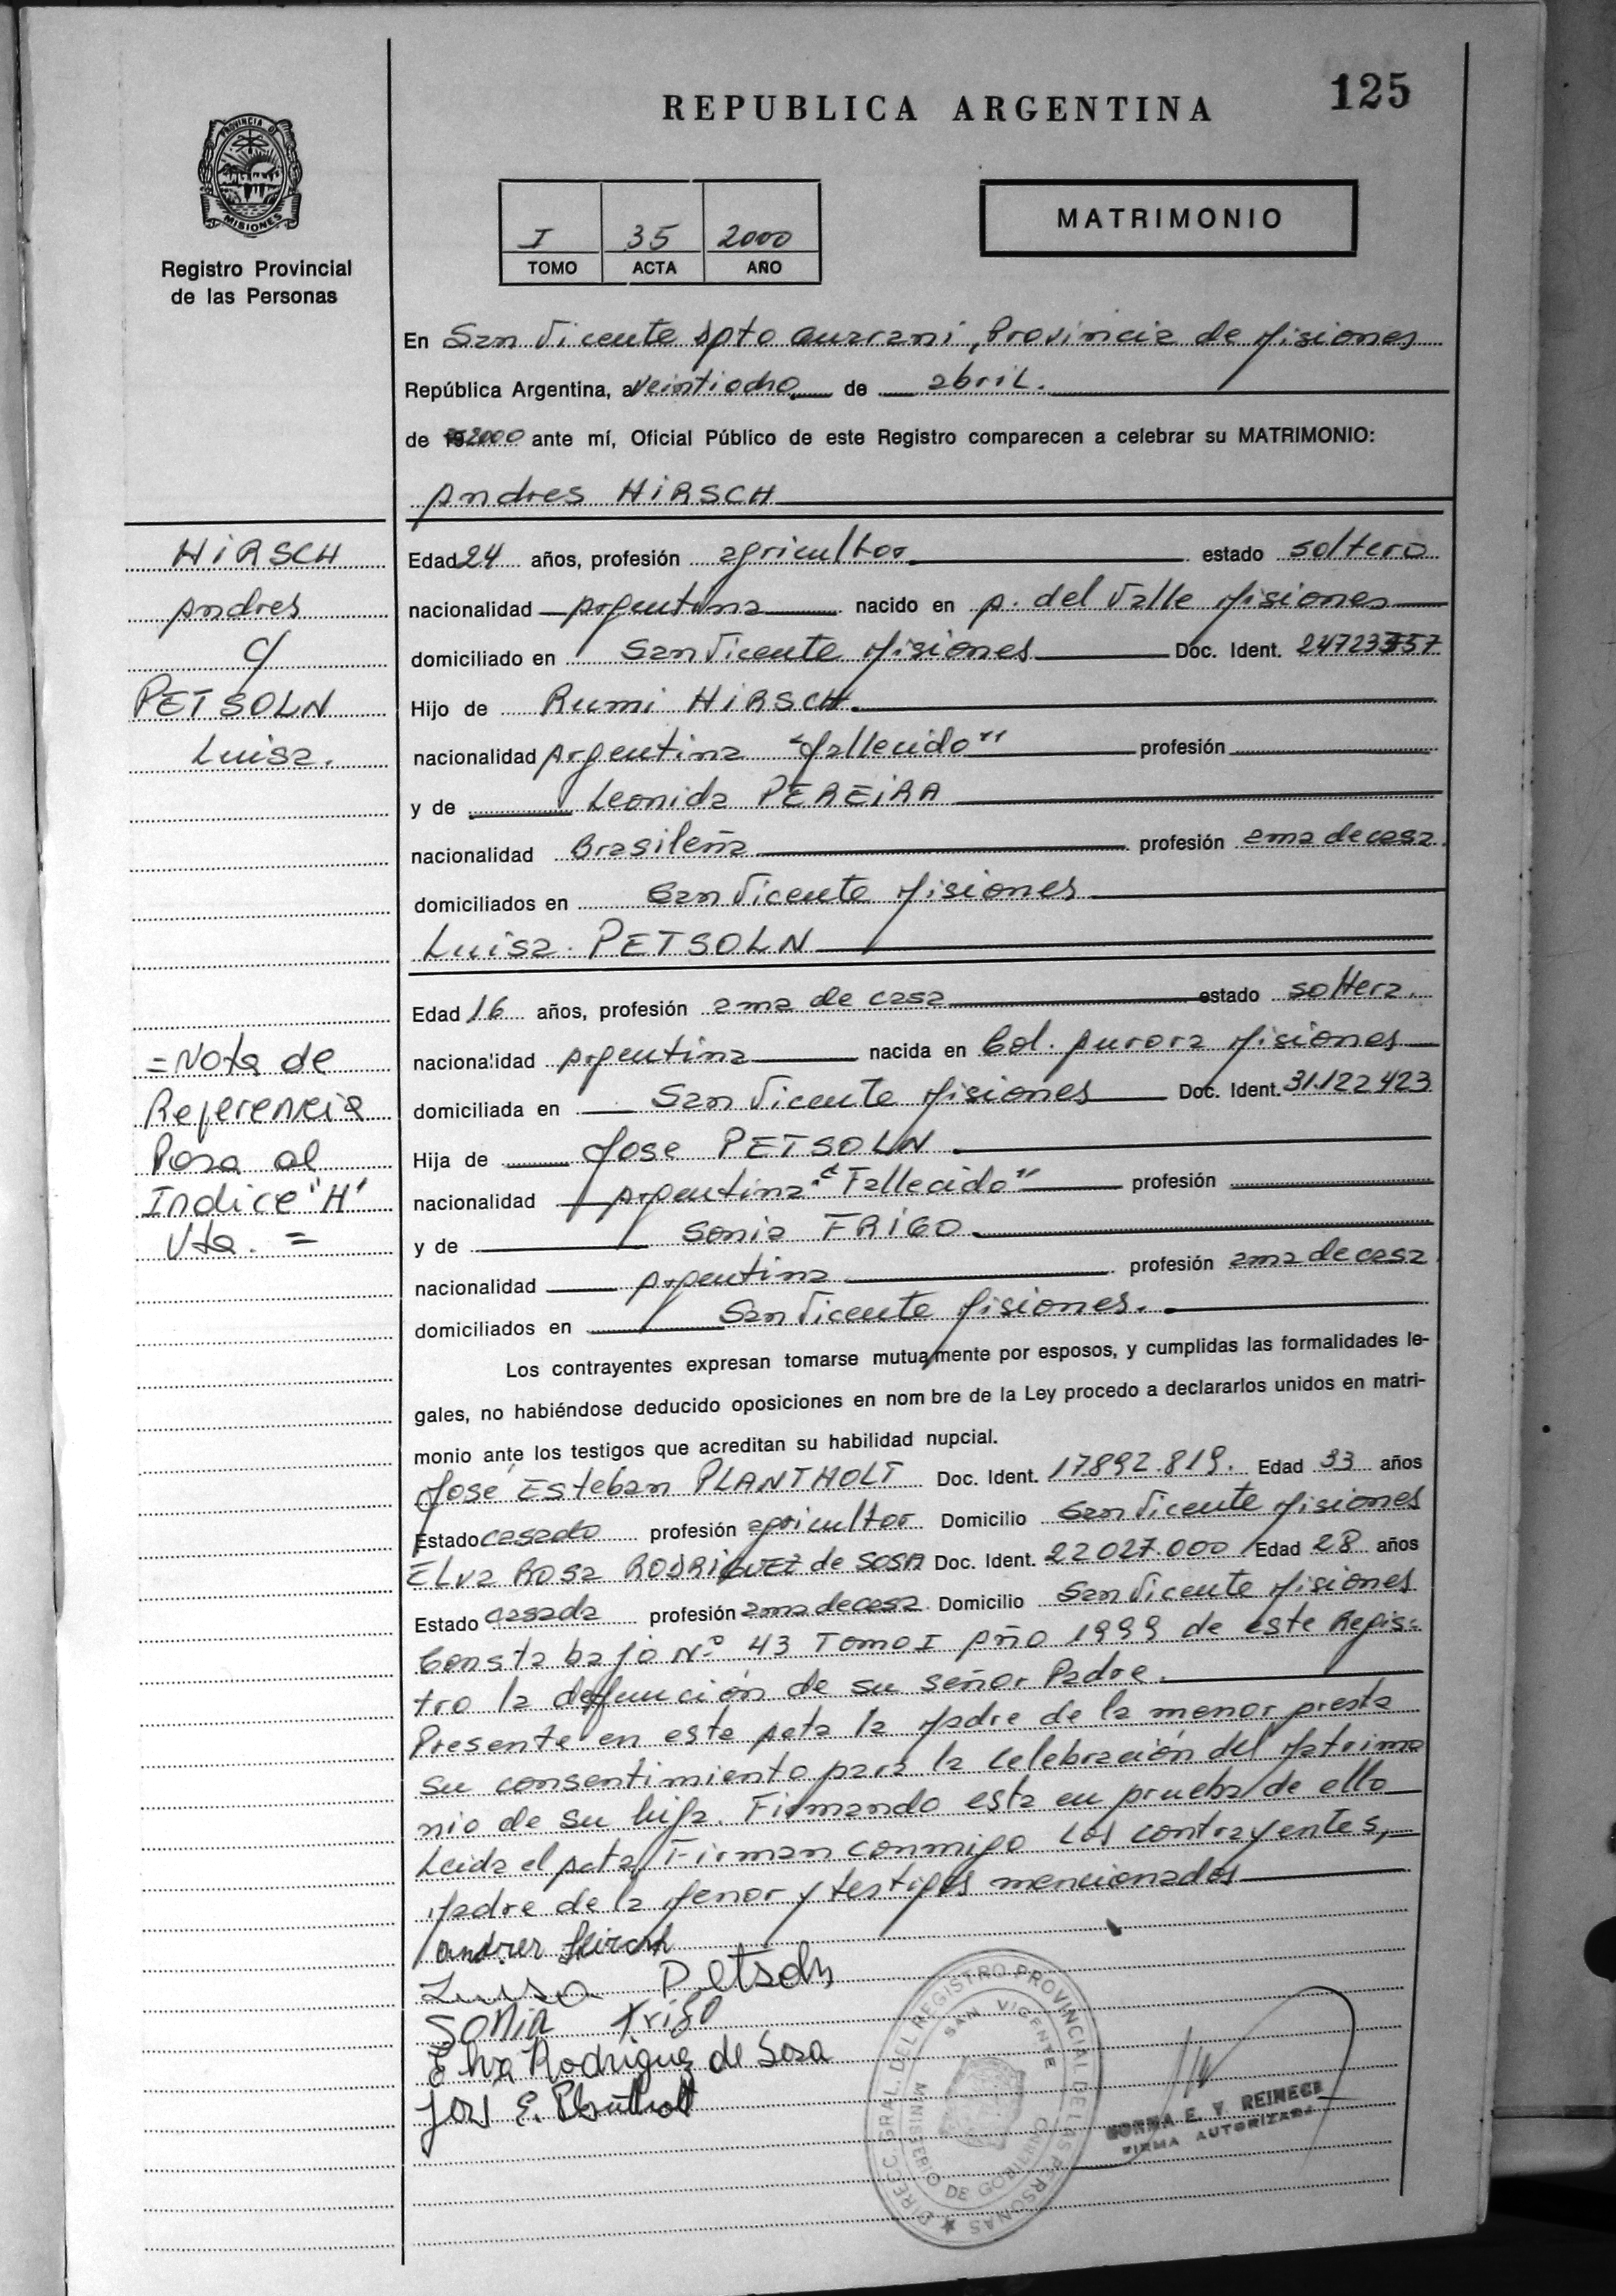 125
REPUBLICA ARGENTINA
PROVINCIA D
MISIONES
Registro Provincial
de las Personas
MATRIMONIO
I 35 2000
TOMO ACTA AÑO
En San Vicente Dpto Guarani, Provincia de Misiones
República Argentina, a Veintiocho de abril.
de 2000 ante mí, Oficial Público de este Registro comparecen a celebrar su MATRIMONIO:
Andres HIRSCH
HIRSCH
Andres
c/
PETSOLN
Luisa.
Edad 24 años, profesión agricultor estado soltero
nacionalidad Argentina nacido en A. del Valle Misiones
domiciliado en San Vicente Misiones Doc. Ident.
Hijo de Rumi HIRSCH.
nacionalidad Argentina "fallecido" profesión
y de Leonida PEREIRA
nacionalidad Brasileña profesión ama de casa.
domiciliados en San Vicente Misiones
Luisa PETSOLN
Edad 16 años, profesión ama de casa estado soltera.
nacionalidad Argentina nacida en Col. Aurora Misiones
domiciliada en San Vicente Misiones Doc. Ident. 31.122.423
Hija de Jose PETSOLN.
nacionalidad Argentina "Fallecido" profesión
y de Sonia FRIGO.
nacionalidad Argentina profesión ama de casa
domiciliados en San Vicente Misiones.
=Nota de
Referencia
Pasa al
Indice "H"
Vta. =
Los contrayentes expresan tomarse mutuamente por esposos, y cumplidas las formalidades le-
gales, no habiéndose deducido oposiciones en nom bre de la Ley procedo a declararlos unidos en matri-
monio ante los testigos que acreditan su habilidad nupcial.
José Esteban PLANTHOLT Doc. Ident. 17.892.819. Edad 33 años
Estado casado profesión agricultor Domicilio San Vicente Misiones
ELva ROSa RODRIGUEZ de SOSA Doc. Ident. 22.027.000 Edad 28 años
Estado casada profesión ama de casa Domicilio San Vicente Misiones
Consta bajo Nº 43 Tomo I Año 1999 de este Regis-
tro la defunción de su señor Padre.
Presente en este Acta la Madre de la menor presta
su consentimiento para la celebración del Matrimo
nio de su hija. Firmando esta en prueba de ello
Leida el Acta, Firman conmigo los contrayentes,
Madre de la Menor y testigos mencionados
andres Hirsch
Luisa Petsoln
Sonia Frigo
Elva Rodriguez de Sosa
José E. Plantholt
DIRECC. GRAL. DEL REGISTRO PROVINCIAL DE LAS PERSONAS
SAN VICENTE
MINISTERIO DE GOBIERNO
NORMA E. V. REINECK
FIRMA AUTORIZADA